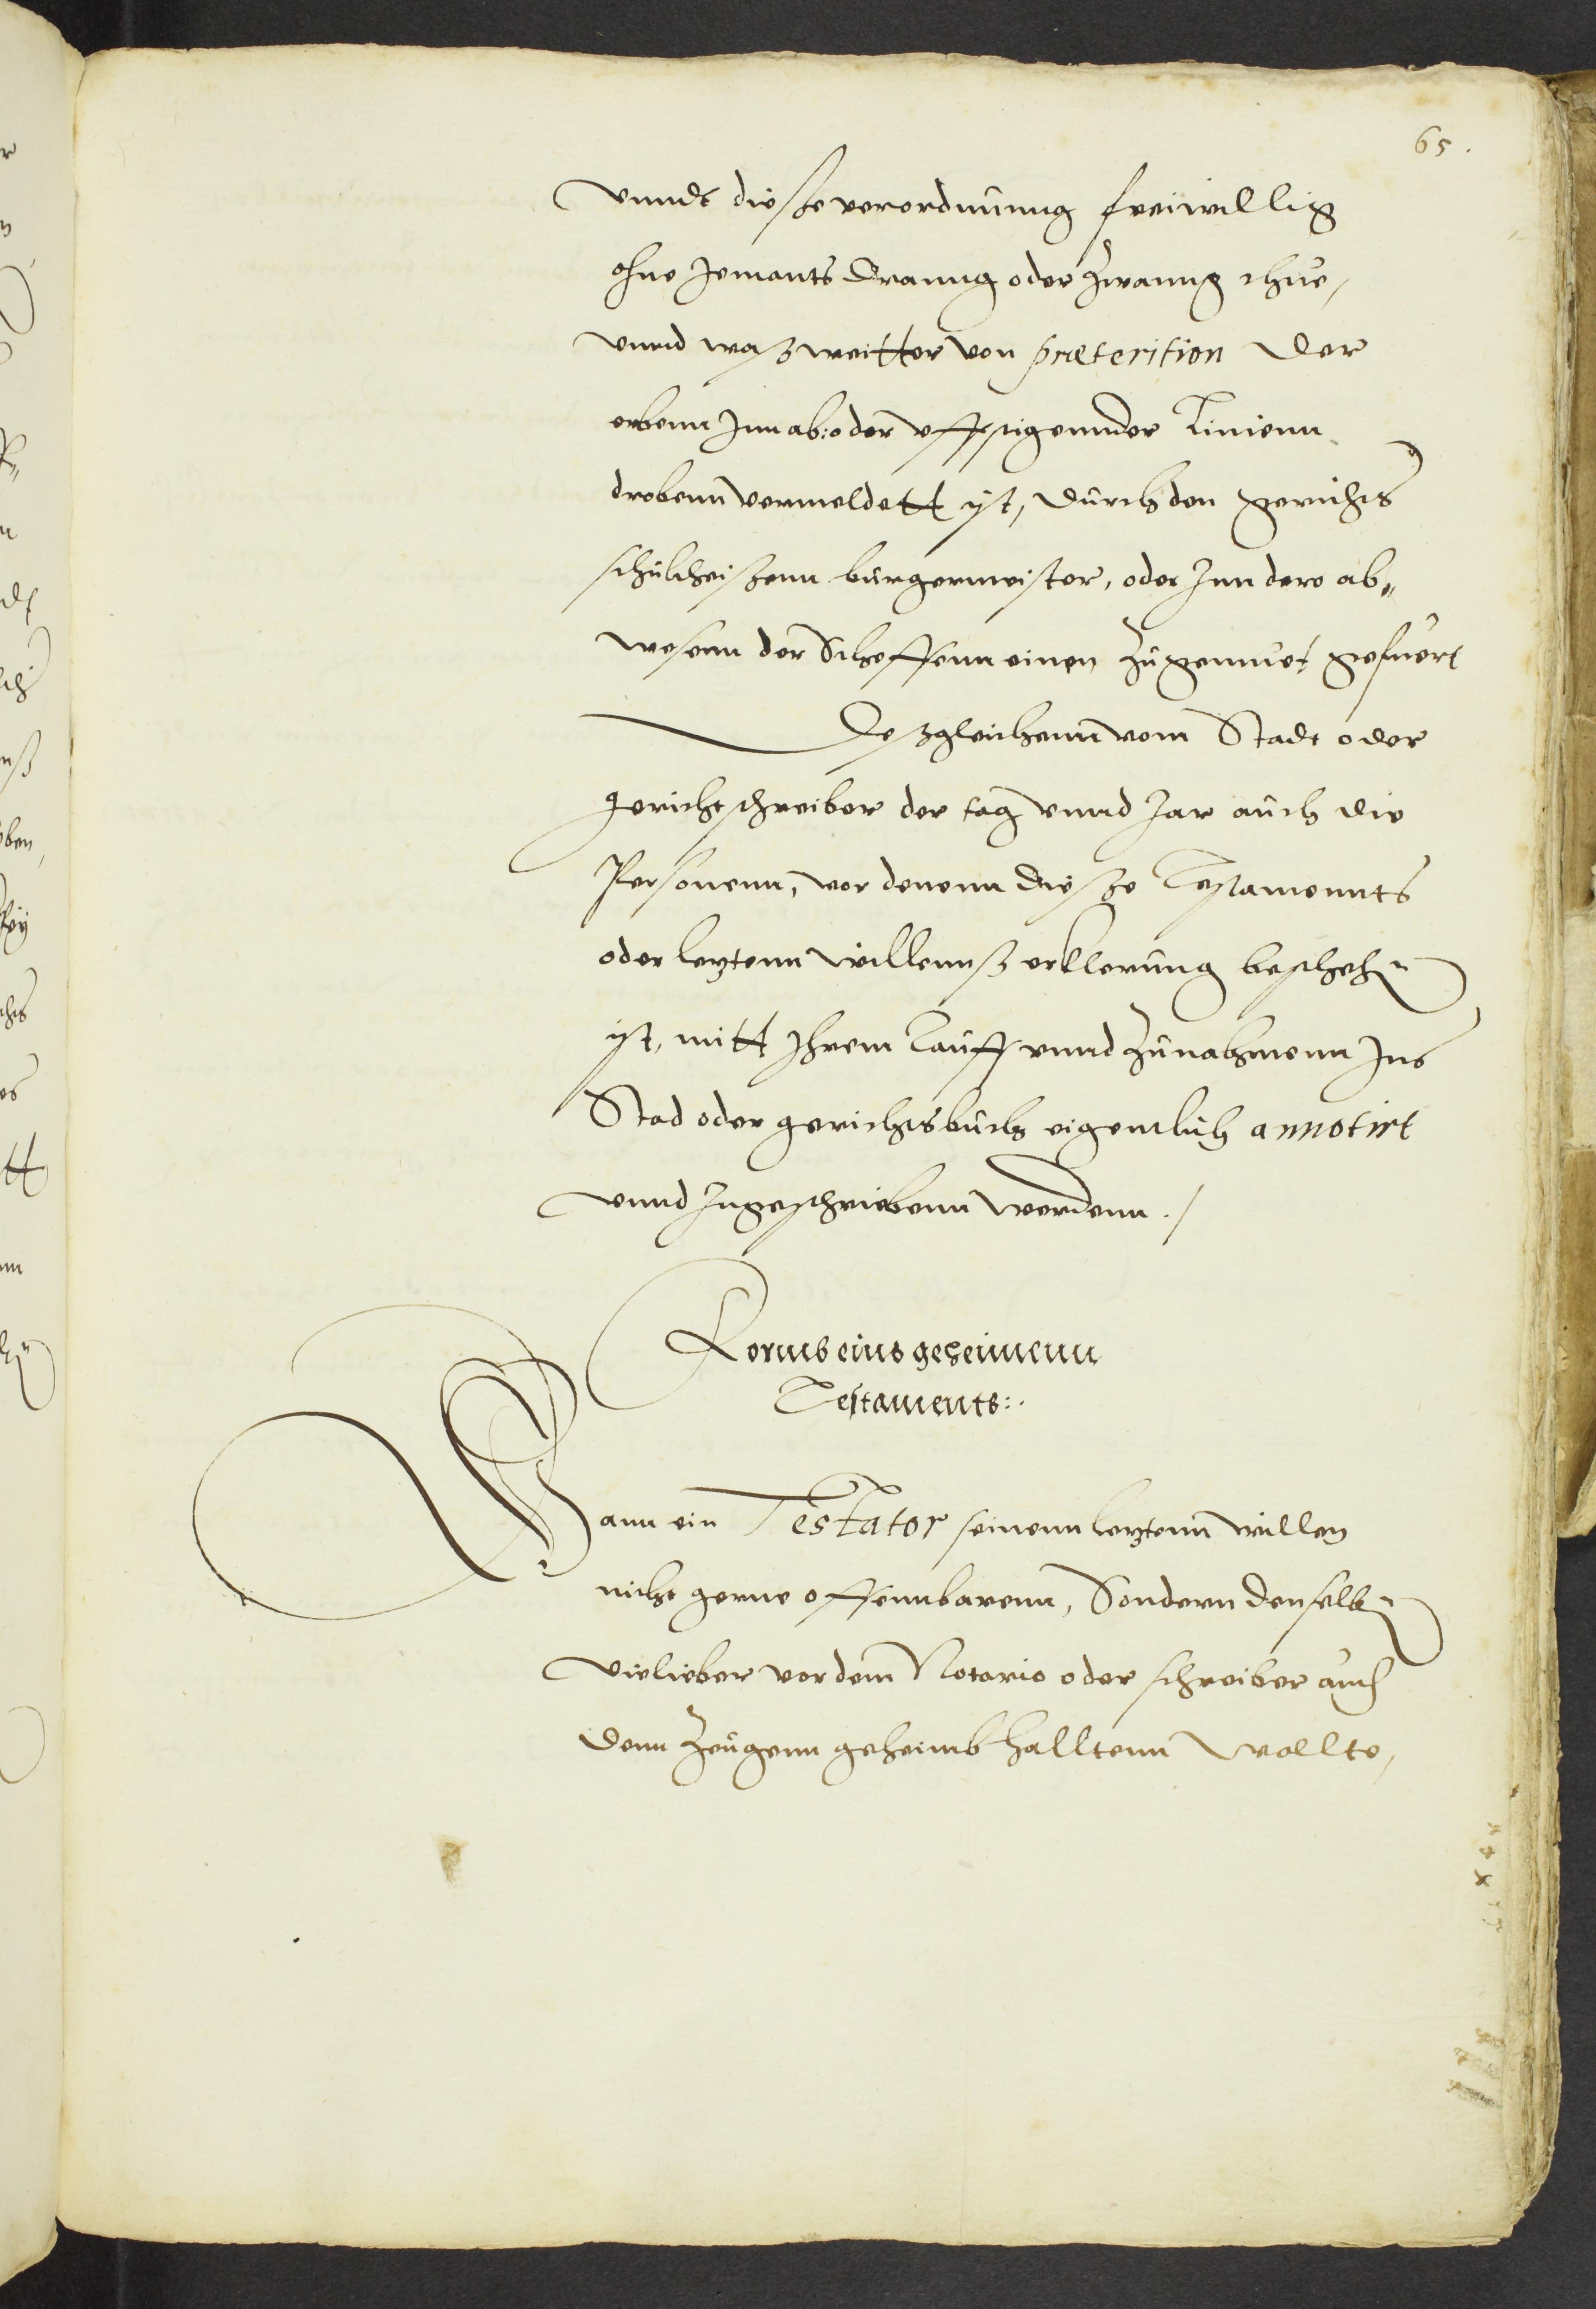 65.
vnndt dieße verordnunng freiwillig
ohne Jemants dranng oder zwanng thue,
vnnd waß weitter von præterition der
erbenn Inn ab: oder vffstigennder Linienn
drobenn vermeldett ist, durch den gerichts
schultheißenn burgermeister, oder Inn dero ab„
wesenn der Scheffenn einen zugemuet gefuert
Deßgleichenn vom Stadt oder
gerichtschreiber der tag vnnd Jar auch die
Personenn, vor denenn dieße Testamennts
oder letztenn willennß erklerung beschehen
ist, mitt Ihrem Tauff vnnd Zunahmenn Ins
Stad oder gerichtsbuch eigentlich annotirt
vnnd Ingeschriebenn werdenn ./
Formb eins geheimenn
Testaments:.
Wann ein Testator seinenn letztenn willen
nicht gerne offennbarenn, Sondern denselben
vielieber vor dem Notario oder schreiber auch
denn Zeugenn geheimb halltenn wollte,